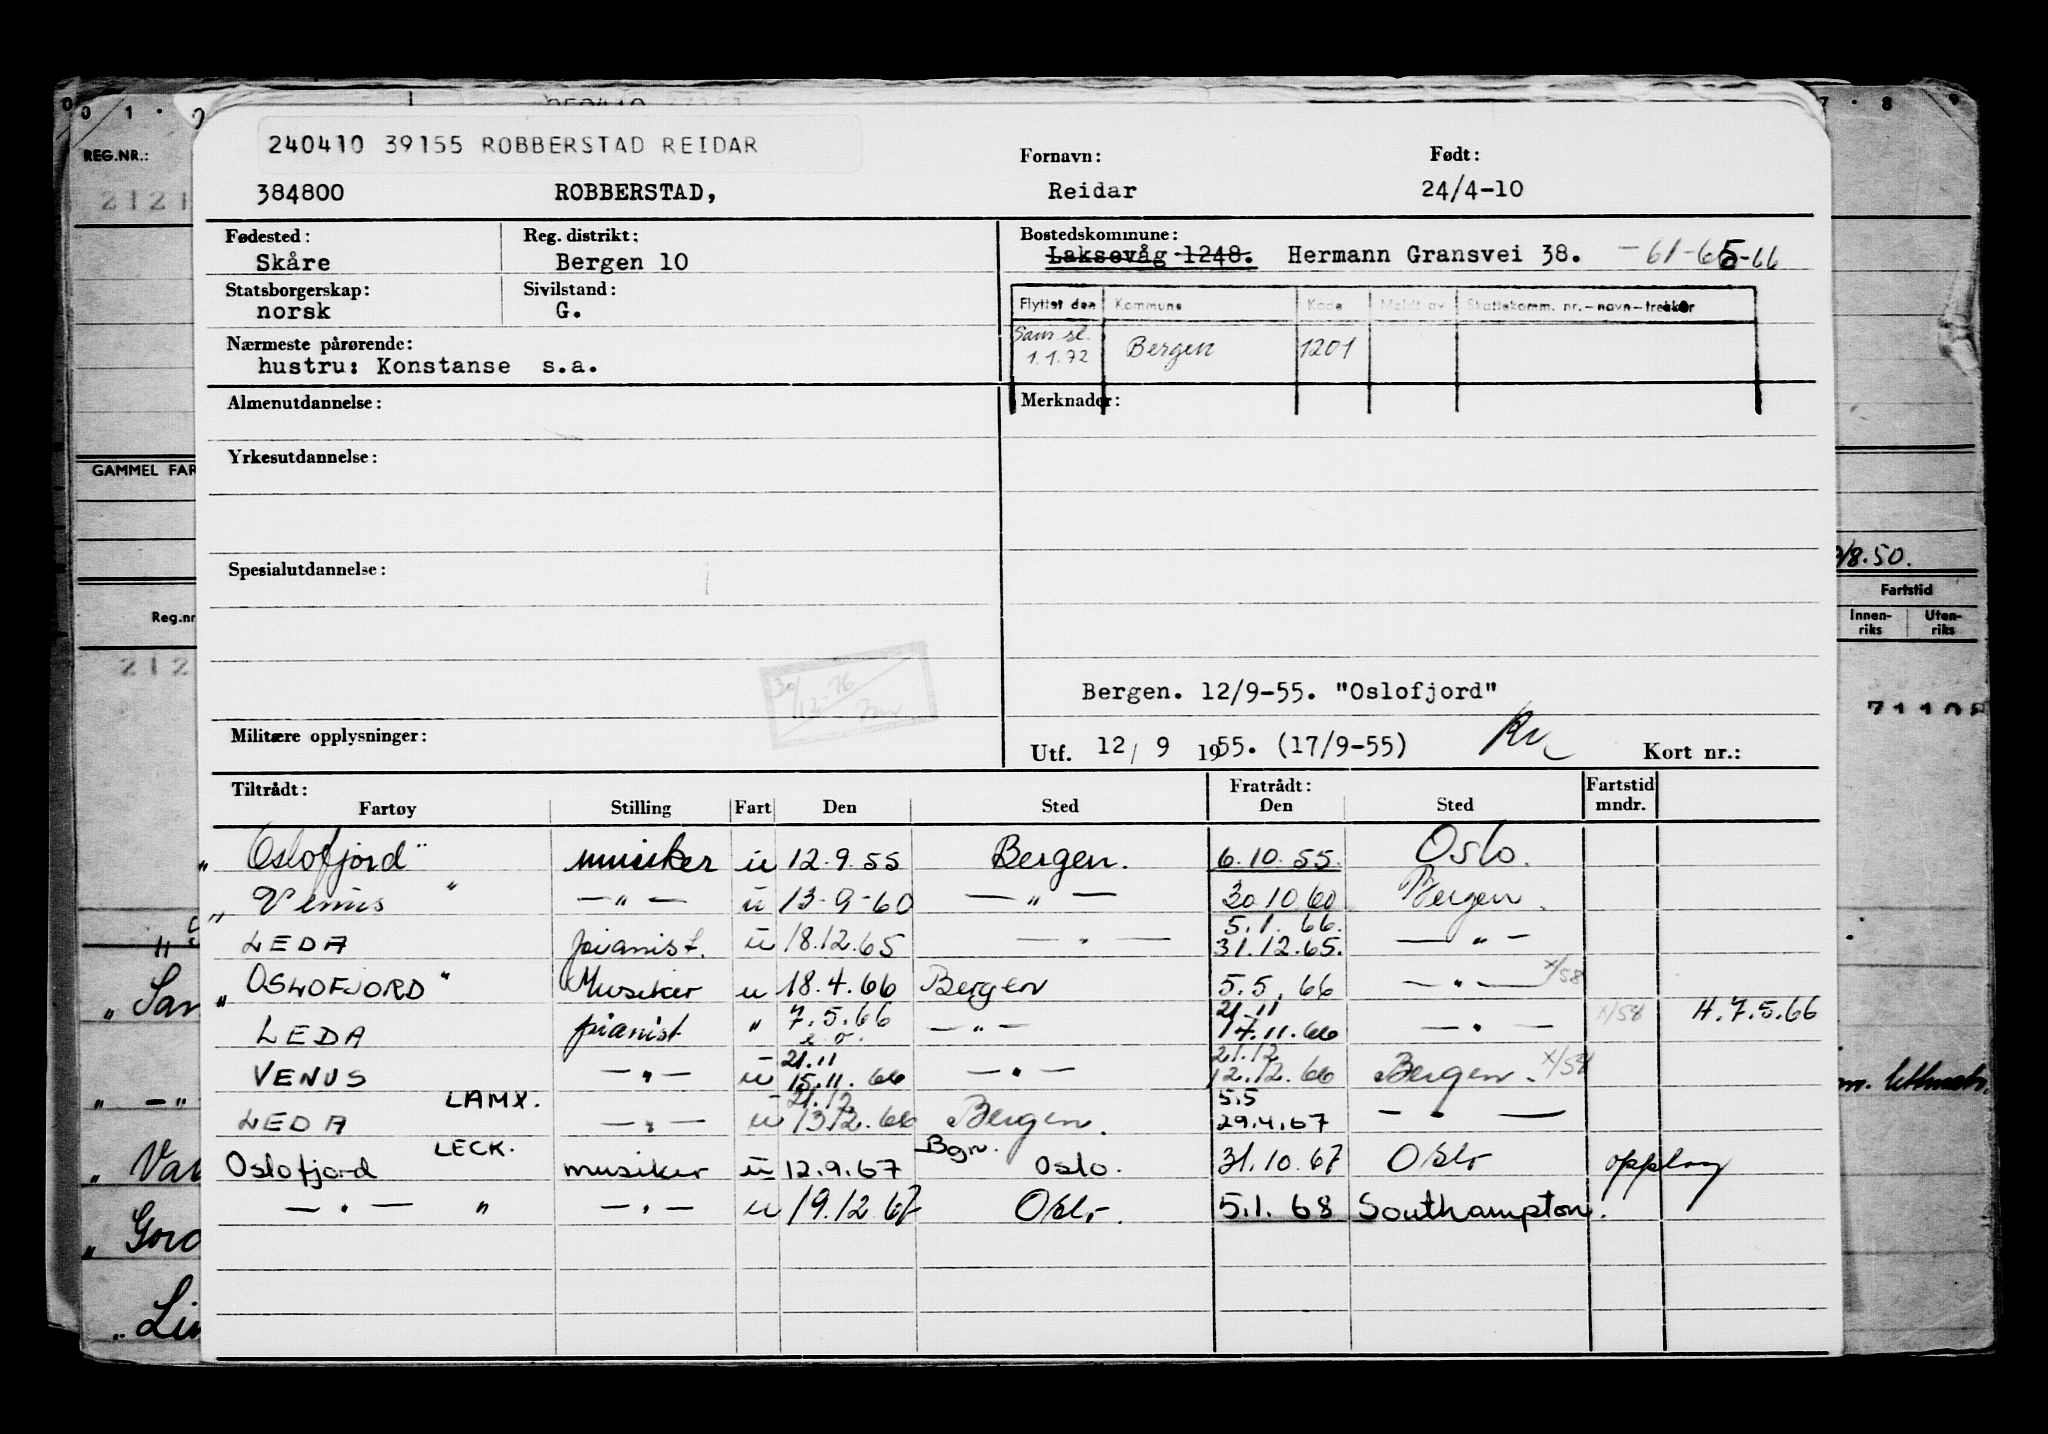 240410 39155 ROBBERSTAD REIDAR
Fornavn: Født:
384800 ROBBERSTAD, Reidar 24/4-10
REG.NR.:
Fødested: Reg. distrikt: Bostedskommune:
Skåre Bergen 10 Laksevåg 1248. Hermann Gransvei 38. -61-65-66
Statsborgerskap: Sivilstand:
norsk G.
Flyttet den Kommune Kode Meldt av Skattekomm. nr.-navn-trekker
Sam. sl.
1.1.72 Bergen 1201
Nærmeste pårørende:
hustru: Konstanse s.a.
Almenutdannelse: Merknader:
Yrkesutdannelse:
GAMMEL FAR
Spesialutdannelse:
/8.50.
Fartstid
Innen-riks Uten-riks
Reg.nr
212
Bergen. 12/9-55. "Oslofjord"
30/12-76
Militære opplysninger:
Utf. 12/ 9 1955. (17/9-55) Kort nr.:
Tiltrådt: Fratrådt: Fartstid
Fartøy Stilling Fart Den Sted Den Sted mndr.
"Oslofjord" musiker u 12.9.55 Bergen. 6.10.55. Oslo.
"Venus" -"- u 13-9-60 -"- 30.10.60 Bergen.
5.1.66.
LEDA pianist. u 18.12.65 -"- 31.12.65. -"-
"OSLOFJORD" Musiker u 18.4.66 Bergen 5.5.66 -"- x/58
7.5.66 21.11
LEDA pianist " -"- 14.11.66 -"- 1/58 H.7.5.66
21.11 21.12
VENUS -"- u 15.11.66 -"- 12.12.66 Bergen. x/58
LAMX. 21.12 5.5
LEDA -"- u 13.12.66 Bergen. 29.4.67 -"-
LECK. Bgn.
Oslofjord musiker u 12.9.67 Oslo. 31.10.67 Oslo opplag
-"- " -"- u 19.12.67 Oslo. 5.1.68 Southampton.